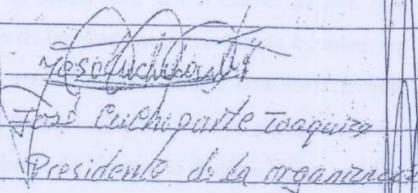 José Cuchiparte Toaquiza
Presidente de la organización